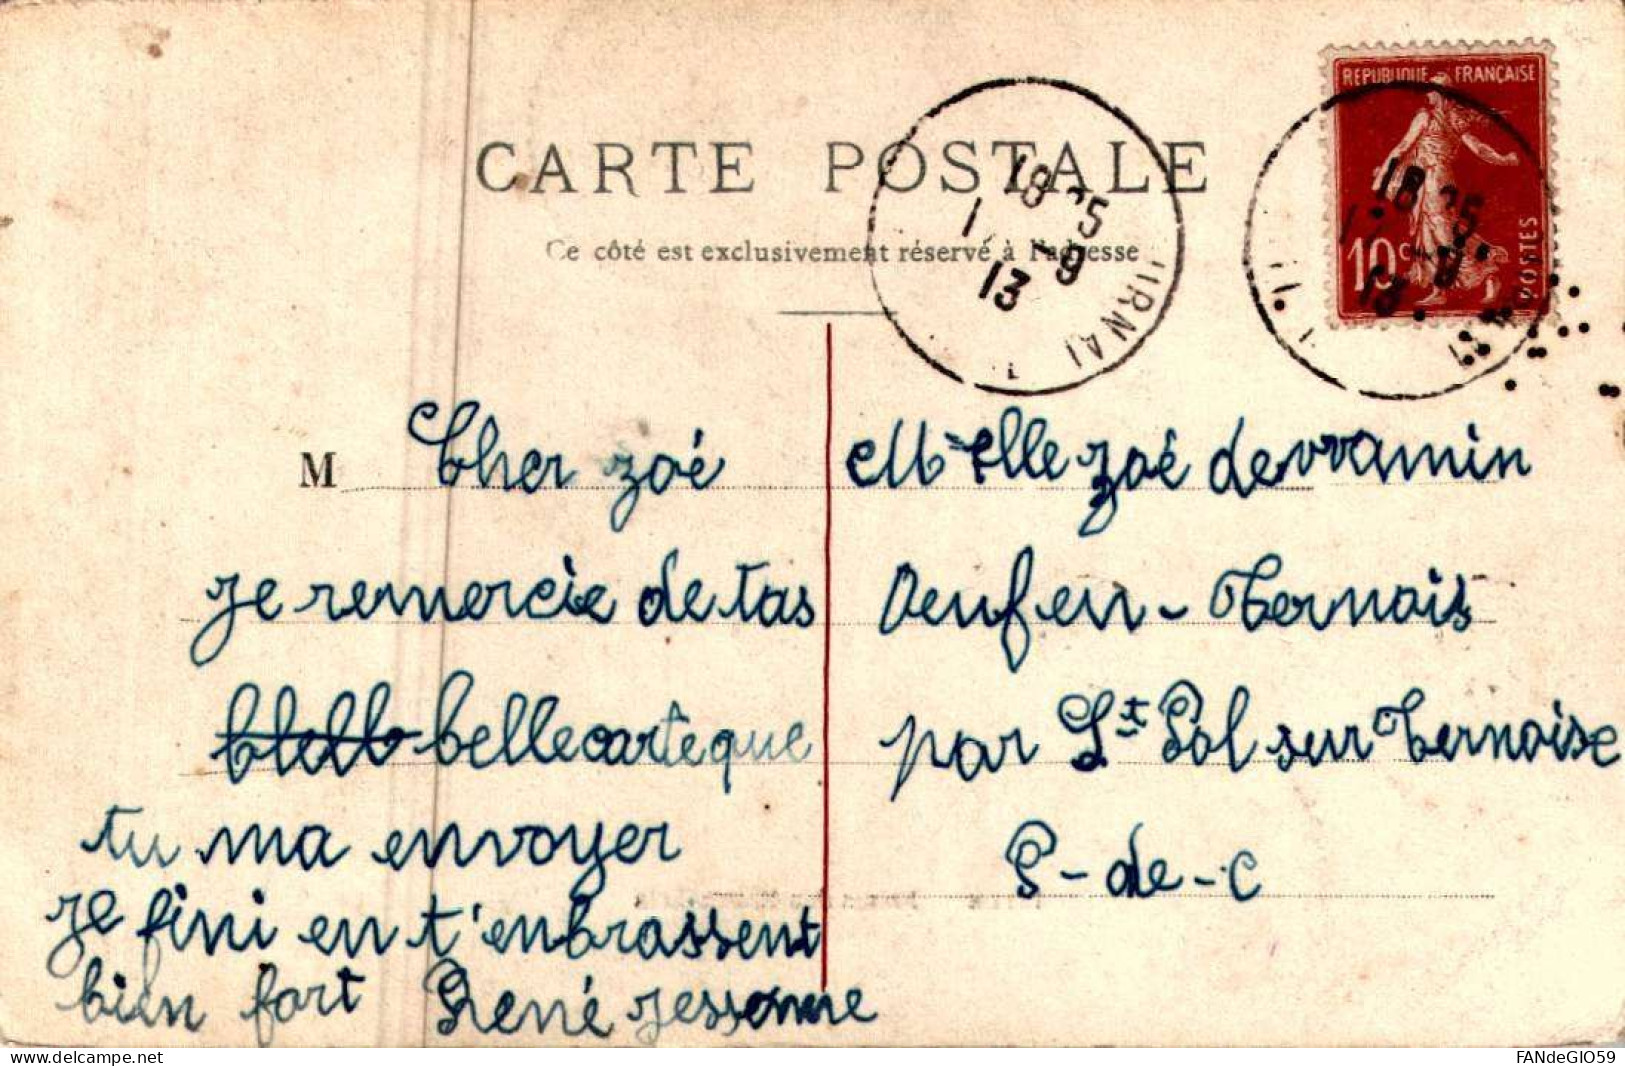 CARTE POSTALE
Ce côté est exclusivement réservé à l'adresse
REPUBLIQUE FRANÇAISE
10c
POSTES
18 25
1 -9
13
URNAI
18 25
-9
13
M
Cher zoé
je remercie de tas
belle carte que
tu ma envoyer
je fini en t'enbrassent
bien fort René
Melle zoé devramin
Oeuf en-Ternois
par St Pol sur Ternoise
P-de-C
delcampe.net
FANdeGIO59